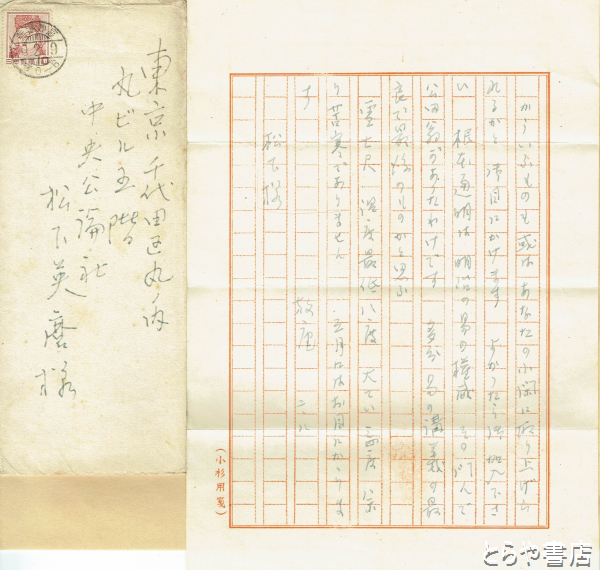 東京千代田区丸ノ内
丸ビル五階
中央公論社
松下英麿様
かういふものも或はあなたの小閑に取り上げら
れるかと 御目にかけます よかつたら御 下さ
い 根本通明は明治の易の権威 その んで
公田翁があつたわけです 多分易の講義の最
良で最後のものかと思ふ
雪七尺 温度最低八度 大てい 四度
苦寒でありません 三月にはお目にかかりま
す
松下様
放庵
(小杉用箋)
とらや書店